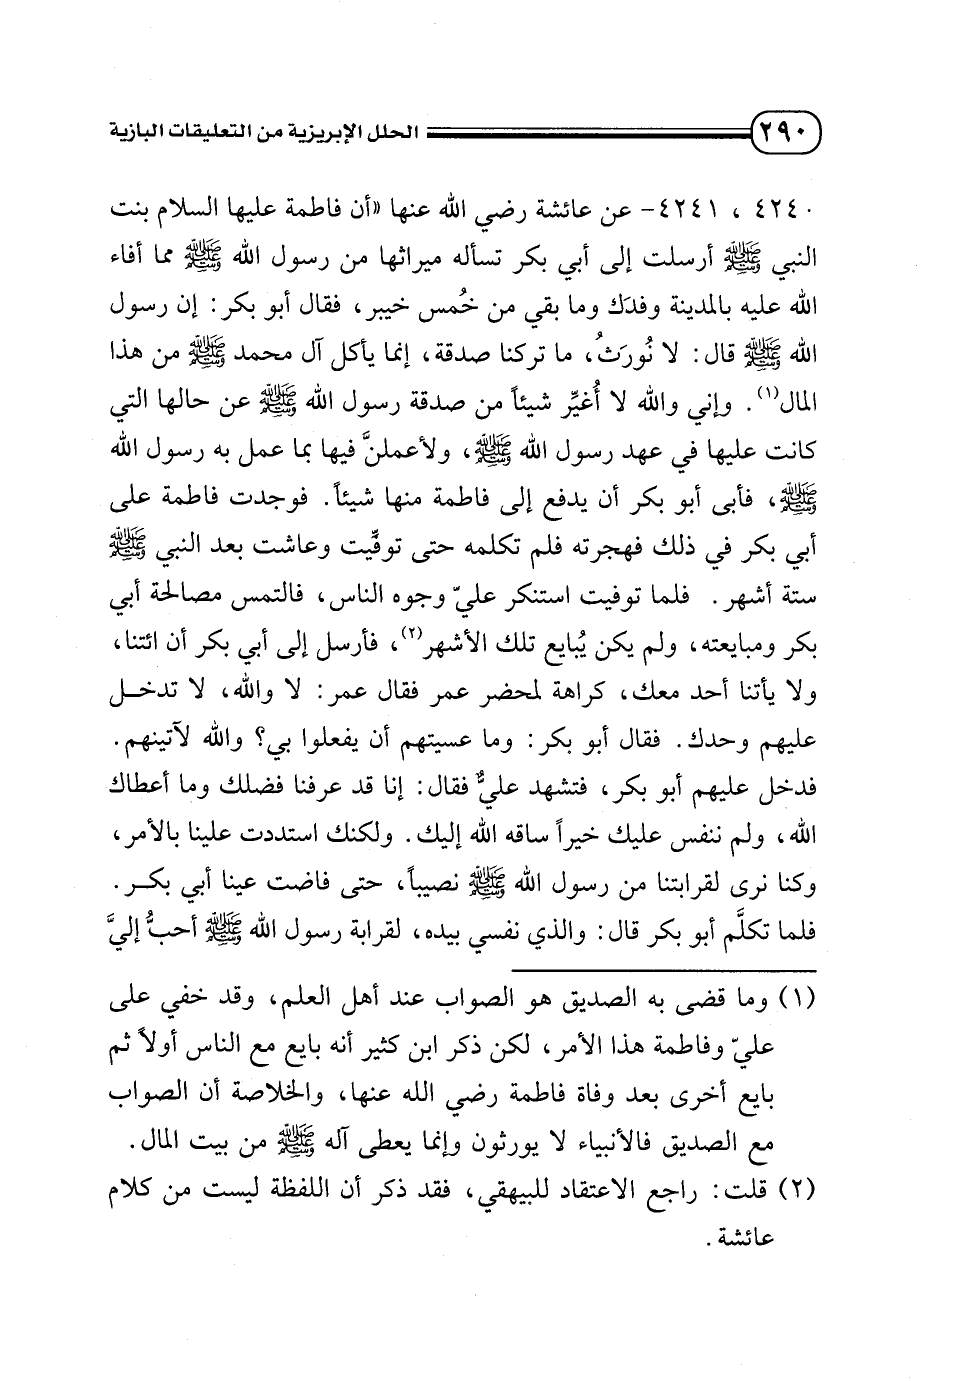 ٢٩٠ الحلل الإبريزية من التعليقات البازية
٤٢٤٠ ، ٤٢٤١- عن عائشة رضي الله عنها «أن فاطمة عليها السلام بنت
النبي ﷺ أرسلت إلى أبي بكر تسأله ميراثها من رسول الله ﷺ مما أفاء
الله عليه بالمدينة وفدَك وما بقي من خُمس خيبر، فقال أبو بكر: إن رسول
الله ﷺ قال: لا نُورَثُ، ما تركنا صدقة، إنما يأكل آل محمد ﷺ من هذا
المال(١). وإني والله لا أُغيِّر شيئاً من صدقة رسول الله ﷺ عن حالها التي
كانت عليها في عهد رسول الله ﷺ، ولأعملنَّ فيها بما عمل به رسول الله
ﷺ، فأبى أبو بكر أن يدفع إلى فاطمة منها شيئاً. فوجدت فاطمة على
أبي بكر في ذلك فهجرته فلم تكلمه حتى توفِّيت وعاشت بعد النبي ﷺ
ستة أشهر. فلما توفيت استنكر عليّ وجوه الناس، فالتمس مصالحة أبي
بكر ومبايعته، ولم يكن يُبايع تلك الأشهر(٢)، فأرسل إلى أبي بكر أن ائتنا،
ولا يأتنا أحد معك، كراهة لمحضر عمر فقال عمر: لا والله، لا تدخل
عليهم وحدك. فقال أبو بكر: وما عسيتهم أن يفعلوا بي؟ والله لآتينهم.
فدخل عليهم أبو بكر، فتشهد عليٌّ فقال: إنا قد عرفنا فضلك وما أعطاك
الله، ولم ننفس عليك خيراً ساقه الله إليك. ولكنك استددت علينا بالأمر،
وكنا نرى لقرابتنا من رسول الله ﷺ نصيباً، حتى فاضت عينا أبي بكر.
فلما تكلَّم أبو بكر قال: والذي نفسي بيده، لقرابة رسول الله ﷺ أحبُّ إليَّ
(١) وما قضى به الصديق هو الصواب عند أهل العلم، وقد خفي على
عليّ وفاطمة هذا الأمر، لكن ذكر ابن كثير أنه بايع مع الناس أولاً ثم
بايع أخرى بعد وفاة فاطمة رضي الله عنها، والخلاصة أن الصواب
مع الصديق فالأنبياء لا يورثون وإنما يعطى آله ﷺ من بيت المال.
(٢) قلت: راجع الاعتقاد للبيهقي، فقد ذكر أن اللفظة ليست من كلام
عائشة.